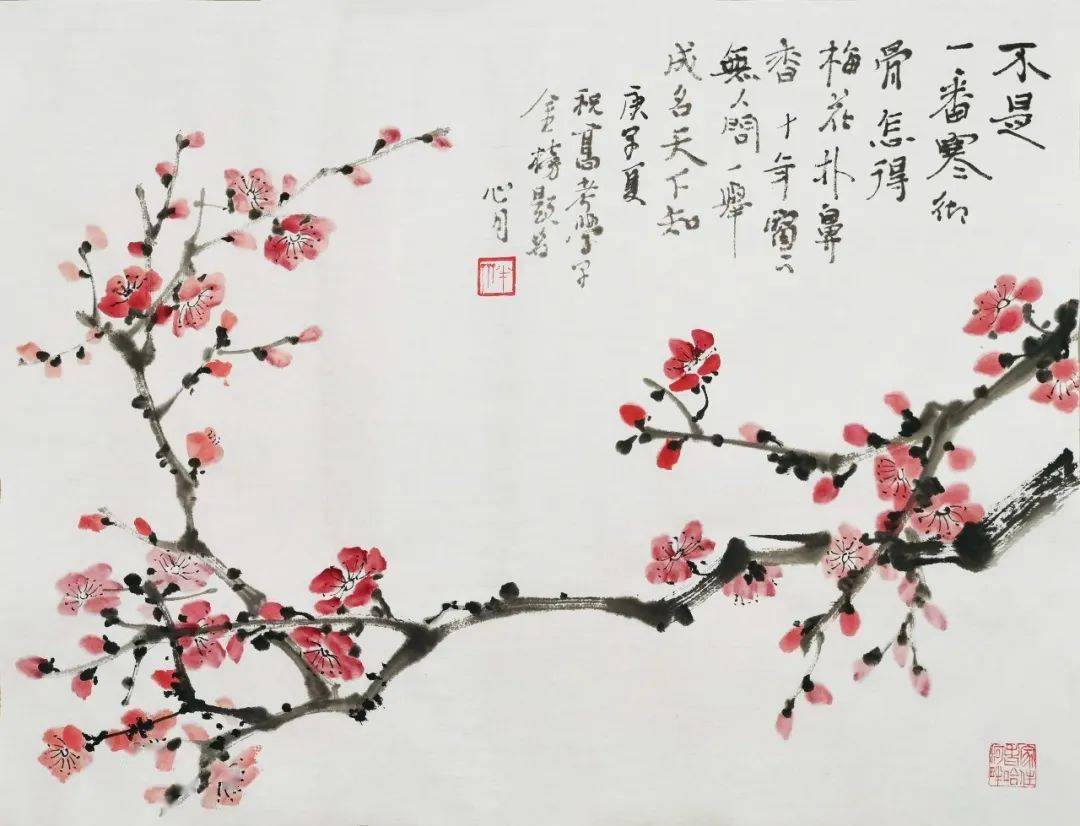 不是
一番寒彻
骨怎得
梅花扑鼻
香十年窗下
無人問一舉
成名天下知
庚子夏
祝高考學子
金榜題名
心月